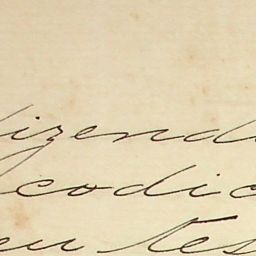 izend
codic
eu tes